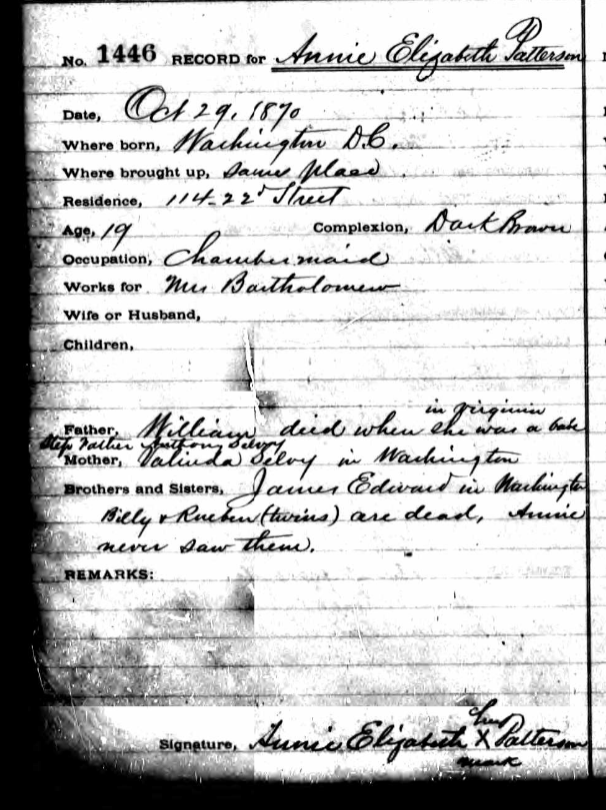 No. 1446 RECORD for Annie Elizabeth Patterson
Date, Oct 29, 1870
Where born, Washington D.C.
Where brought up, same place
Residence, 114-22d Street
Age, 19 Complexion, Dark Brown
Occupation, Chambermaid
Works for Mrs Bartholomew
Wife or Husband,
Children,
in Virginia
Father, William died when she was a babe
Step Father Anthony Selvy
Mother, Valinda Selvy in Washington
Brothers and Sisters, James Edward in Washington
Billy & Rueben (twins) are dead, Annie
never saw them.
REMARKS:
her
Signature, Annie Elizabeth X Patterson
mark